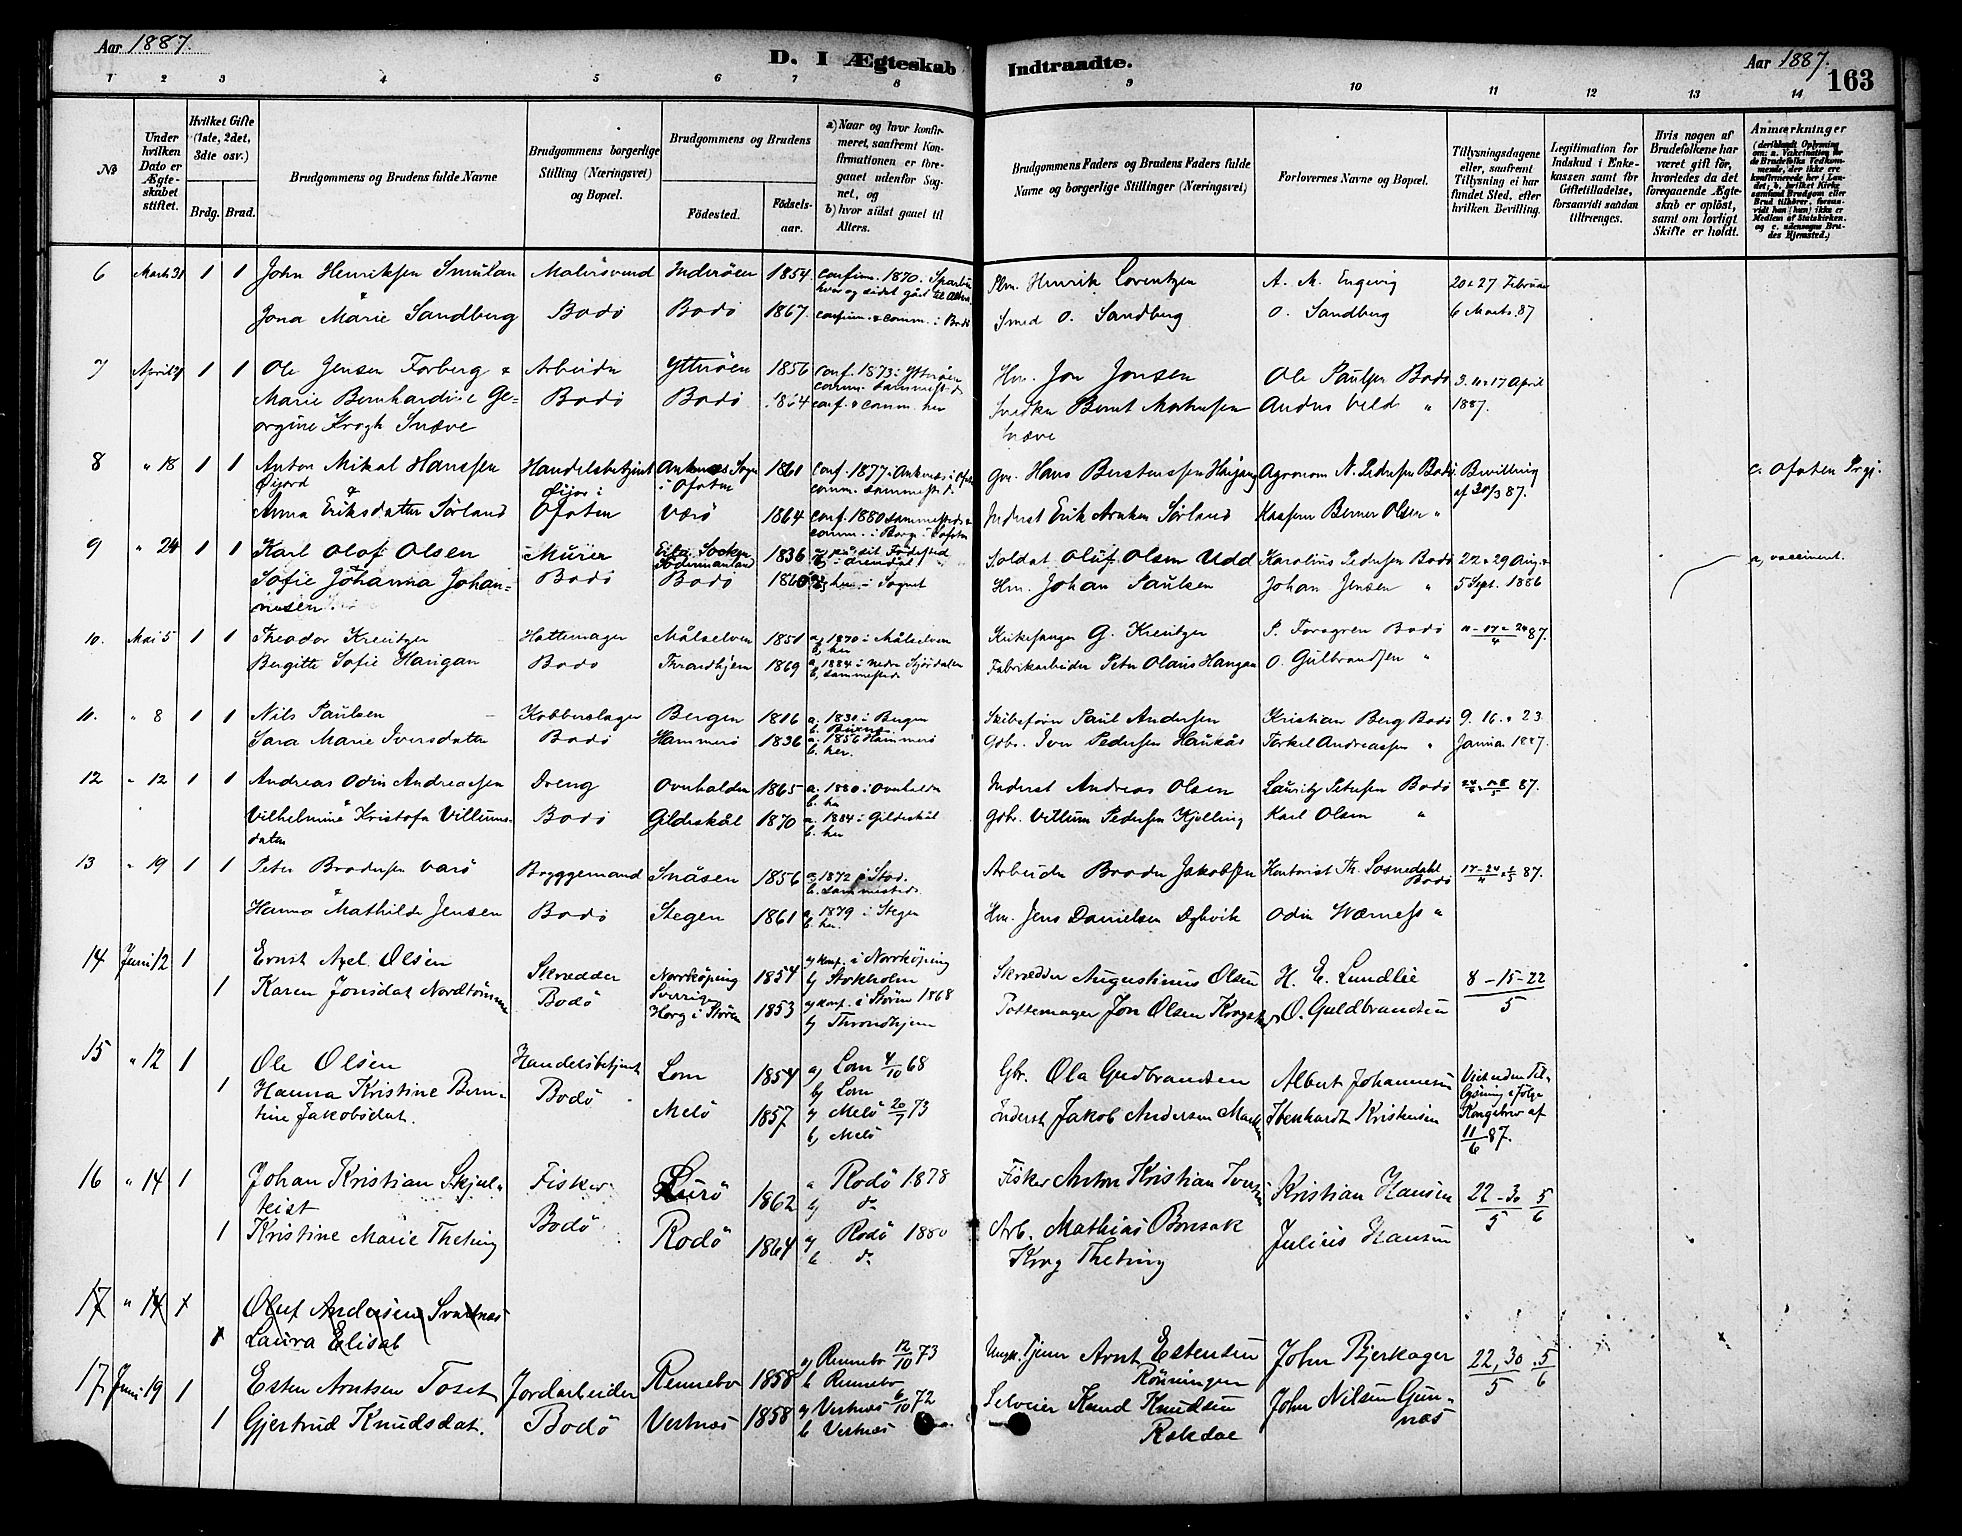 Aar 1887.
D. I Ægteskab Indtraadte.
Aar 1887.
163
1 2 3 4 5 6 7 8 9 10 11 12 13 14
No
Under hvilken Dato er Ægteskabet stiftet.
Hvilket Gifte (1ste, 2det, 3die osv.)
Brdg. Brud.
Brudgommens og Brudens fulde Navne
Brudgommens borgerlige Stilling (Næringsvei) og Bopæl.
Brudgommens og Brudens
Fødested.
Fødselsaar.
a) Naar og hvor konfirmeret, saafremt Konfirmationen er foregaaet udenfor Sognet, og
b) hvor sidst gaaet til Alters.
Brudgommens Faders og Brudens Faders fulde Navne og borgerlige Stillinger (Næringsvei)
Forlovernes Navne og Bopæl.
Tillysningsdagene eller, saafremt Tillysning ei har fundet Sted, efter hvilken Bevilling.
Legitimation for Indskud i Enkekassen samt for Giftetilladelse, forsaavidt saadan tiltrænges.
Hvis nogen af Brudefolkene har været gift før, hvorledes da det foregaaende Ægteskab er opløst, samt om lovligt Skifte er holdt.
Anmærkninger (deriblandt Oplysning om: a. Vakcination for de Brudefolks Vedkommende, der ikke ere konfirmerede her i Landet; b. hvilket Kirkesamfund Brudgom eller Brud tilhører, forsaavidt han (hun) ikke er Medlem af Statskirken, og c. udensogns Brudes Hjemsted.)
6 Marts 31 1 1 John Henriksen Smulan Malersvend Inderøen 1854 confirm. 1870 i Sparbu
hvor og sidst gået til Alters
Henrik Lorentzen A. M. Engevig 20 & 27 Februar
Jona Marie Sandberg Bodö Bodö 1867. confirm. & comm. i Bodö Smed O. Sandberg O. Sandberg 6 Marts 87
7 April 21 1 1 Ole Jensen Forberg & Arbeider Ytterøen 1856 conf. 1873 i Ytterøen
comm. sammesteds
Hm. Jon Jonsen Ole Paulsen Bodö 3. 10 & 17 April
Marie Bernhardine Ge= Bodö Bodö 1864 conf. & comm. her Bernt Andres Veld " 1887.
orgine Krogh Snæve Snæve
8 " 18 1 1 Anton Mikal Hanssen Handelsbetjent Ankenes Sogn 1861 conf. 1877 i Ankenæs i Ofoten
Øijord & Øijor i i Ofoten comm. sammesteds
Hans Agronom N. Pedersen Bodö Bevilling
af 30/3 87. c. Ofoten Prgj.
Anna Eriksdatter Sørland Ofoten Værö 1864 conf. 1880 sammesteds
comm. i Borge i Lofoten
Inderst Erik Sørland Kaspern Berner Olsen "
9 " 24 1 1 Karl Olof Olsen Murer Socken 1836 a, på sit Fødested
Södermanland b. i Arendal
Soldat Olof Olsen Udd Karolius Pedersen Bodö 22 & 29 Aug. & a, vaccineret.
Sofie Johanna Johan= Bodö Bodö 1860 her i Sognet Hm. Johan Paulsen Johan Jensen " 5 Sept. 1886
nesen
10. Mai 5 1 1 Theodor Kreutzer Hattemager Målselven 1851 a, 1870 i Målselven
b, her
Kirkesanger G. Kreutzer P. Forsgren Bodö 87.
Bergitte Sofie Haugan Bodö Throndhjem 1869 a, 1884 i nedre Stjørdalen
b, sammesteds
Fabrikarbeider Peter Olaus Haugan O. Gulbrandsen "
11. " 8 1 1 Nils Paulsen Kobberslager Bergen 1816 a. 1830 i Bergen
Skibsfører Paul Andersen Kristian Berg Bodö 9. 16. & 23
Sara Marie Iversdatter Bodö Hammerö 1836 a. 1856 Hammerö
b. her.
Gdbr. Iver Pedersen Haukås Terkel Andreassen " Januar 1887.
12 " 12 1 1 Andreas Odin Andreassen Dreng Overhalden 1865 a. 1880 i Overhalden
b. her
Inderst Andreas Olsen Lauritz Petersen Bodö 87.
Vilhelmine Kristofa Villums= Bodö Gildeskål 1870 a. 1884 i Gildeskål
b. her
Gdbr. Villum Pedersen Kjelling Karl Olsen "
datter
13 " 19 1 1 Peter Brodersen Varö Bryggemand Snåsen 1856 a, 1872 i Stod.
b. sammesteds.
Arbeider Broder Jakobsen Kontorist Th. Sosnedahl
Bodö 87.
Hanna Mathilde Jensen Bodö Stegen 1861 a, 1879 i Stegen
b. her.
Hm. Jens Danielsen Dybvik Odin Wærness "
14 Juni 12 1 Ernst Axel Olsen Skrædder Norrköping
Sverrige 1854 a) konf. i Norrköping
b) Stockholm
Skrædder Augustinus Olsen H. E. Lundlie 8 - 15 - 22
5
1 Karen Jonsdat Nordtømme Bodö Horg i Støren 1853 a) konf. i Støren 1868
b) Throndhjem
Pottemager Jon Olsen O. Guldbrandsen
15 " 12 1 Ole Olsen Handelsbetjent Lom 1854 a) Lom 4/10 68
b) Lom
Gbr. Ola Gudbrandsen Albert Johannesen Viet uden Til=
lysning i Følge
1 Hanna Kristine Bern= Bodö Melö 1857 a) Melö 20/7 73
b) Melö
Inderst Jakob Andersen Ibenhardt Kristensen Kongebrev af
11/6 87.
tine Jakobsdat.
16 " 14 1 Johan Kristian Skjel=
teist Fisker Lurö 1862 a Rodö 1878
b) do
Fisker Anton Kristian Kristian Hansen 22 - 30 5
5 6
1 Kristine Marie Theting Bodö Rodö 1864 a) Rodö 1880
b do
Arb. Mathias
Krog Theting Julius Hansen
17 " 14 1 Oluf Andersen Svartnæs
1 Laura Elisab
17. Juni 19 1 Esten Arntsen Toset Jordarbeider Rennebo 1858 a) Rennebo 12/10 73
b Rennebo
Tjener Arnt Estensen
Rönningen John Bjerkager 22, 30 . 5
5 6
1 Gjertrud Knudsdat. Bodö Vestnæs 1858 a) Vestnæs 6/10 72
b Vestnæs
Selveier Knud Knudsen
Rekdal John Nilsen Gun=
næs